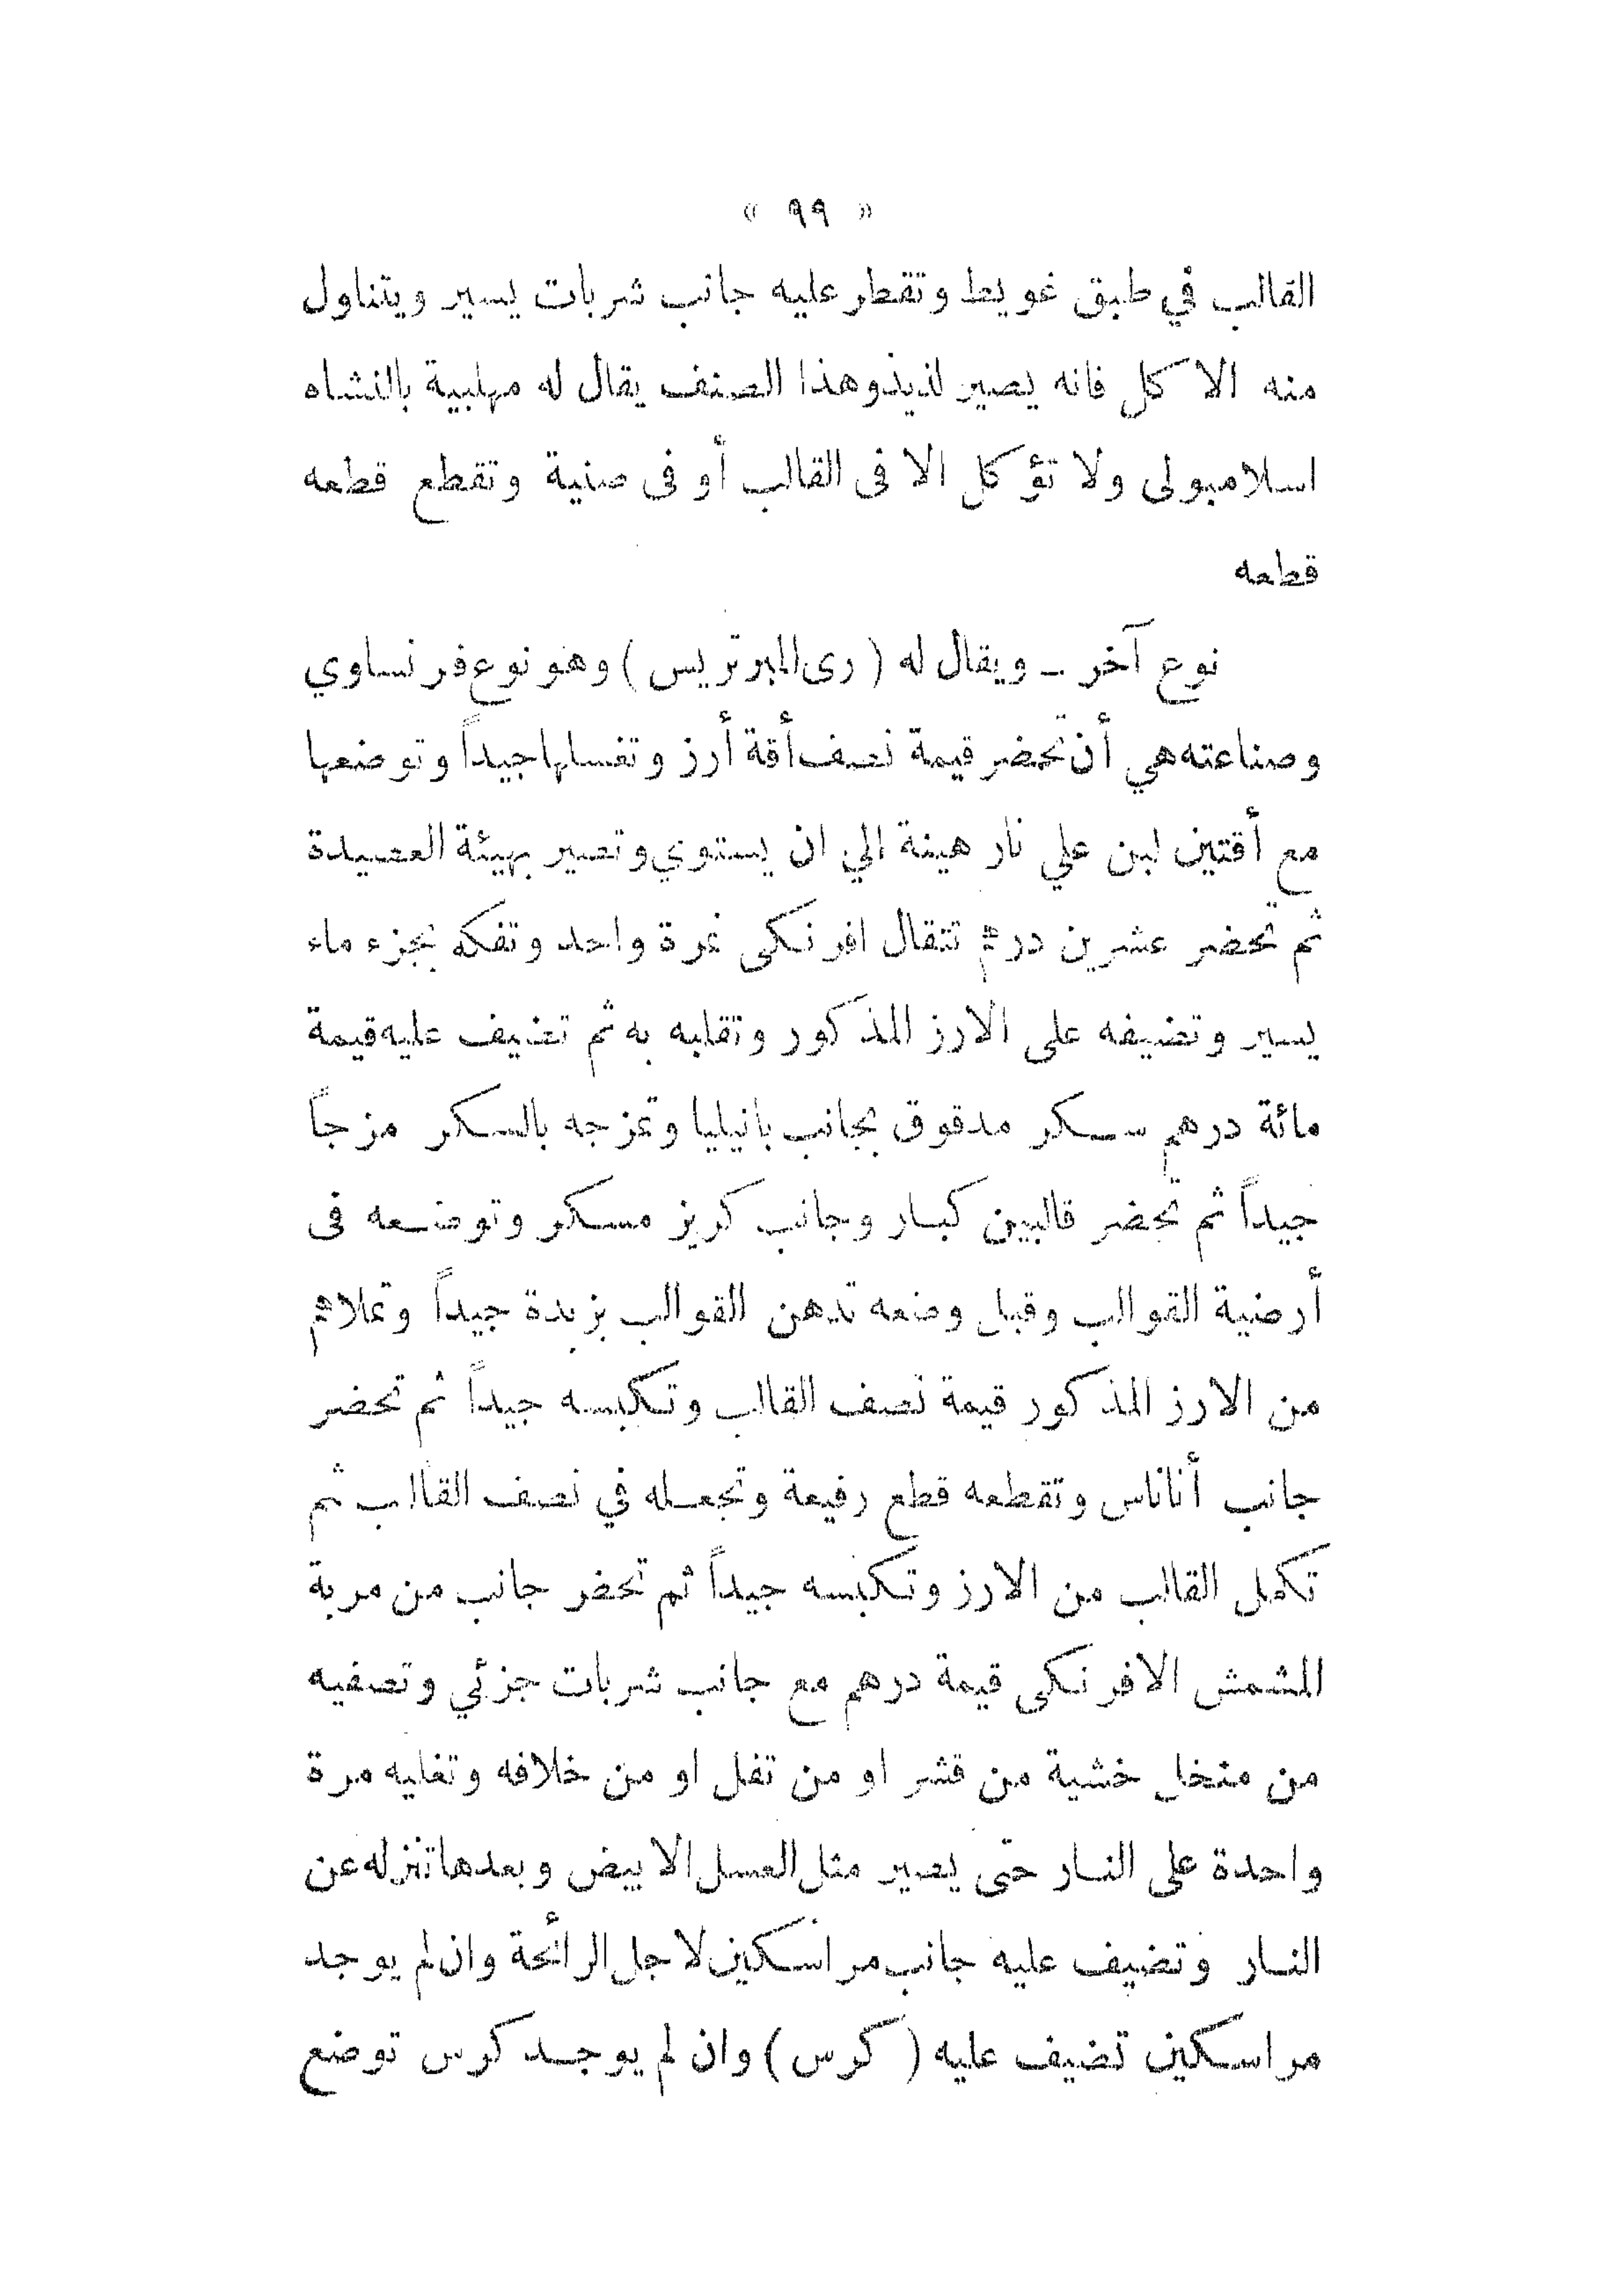 « ٩٩ »
القالب في طبق غويط وتقطر عليه جانب شربات يسير ويتناول
منه الاكل فانه يصير لذيذ وهذا الصنف يقال له مهلبية بالنشاه
اسلامبولى ولا تؤكل الا فى القالب أو فى صنية وتقطع قطعه
قطعه
نوع آخر ــ ويقال له ( رى المبرتريس ) وهو نوع فرنساوي
وصناعته هي أن تحضر قيمة نصف أقة أرز وتغسلها جيداً وتوضعها
مع أقتين لبن علي نار هينة الي ان يستوي وتصير بهيئة العصيدة
ثم تحضر عشرين درهم تتقال افرنكى نمرة واحد وتفكه بجزء ماء
يسير وتضيفه على الارز المذكور وتقلبه به ثم تضيف عليه قيمة
مائة درهم سكر مدقوق بجانب بانيليا وتمزجه بالسكر مزجاً
جيداً ثم تحضر قالبين كبار وجانب كريز مسكر وتوضعه فى
أرضية القوالب وقبل وضعه تدهن القوالب بزبدة جيداً وتملاهم
من الارز المذكور قيمة نصف القالب وتكبسه جيداً ثم تحضر
جانب أناناس وتقطعه قطع رفيعة وتجعله في نصف القالب ثم
تكمل القالب من الارز وتكبسه جيداً ثم تحضر جانب من مربة
المشمش الافرنكى قيمة درهم مع جانب شربات جزئي وتصفيه
من منخل خشية من قشر او من تفل او من خلافه وتغليه مرة
واحدة على النار حتى يصير مثل العسل الابيض وبعدها تنزله عن
النار وتضيف عليه جانب مراسكين لاجل الرائحة وان لم يوجد
مراسكين تضيف عليه ( كرس ) وان لم يوجد كرس توضع